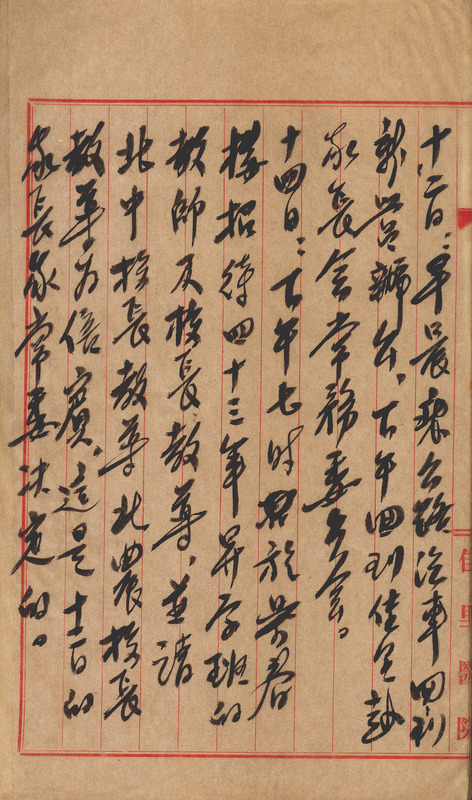 十二日：早晨乘公路汽車回到
新營辦公，下午回到佳里赴
家長會常務委員會。
十四日：下午七時 於
樓招待四十三年昇學班的
教師及校長、教導，並請
北中校長教導北農校長
教導為倍賓，這是十二日的
家長會常委決定的。
佳里醫院